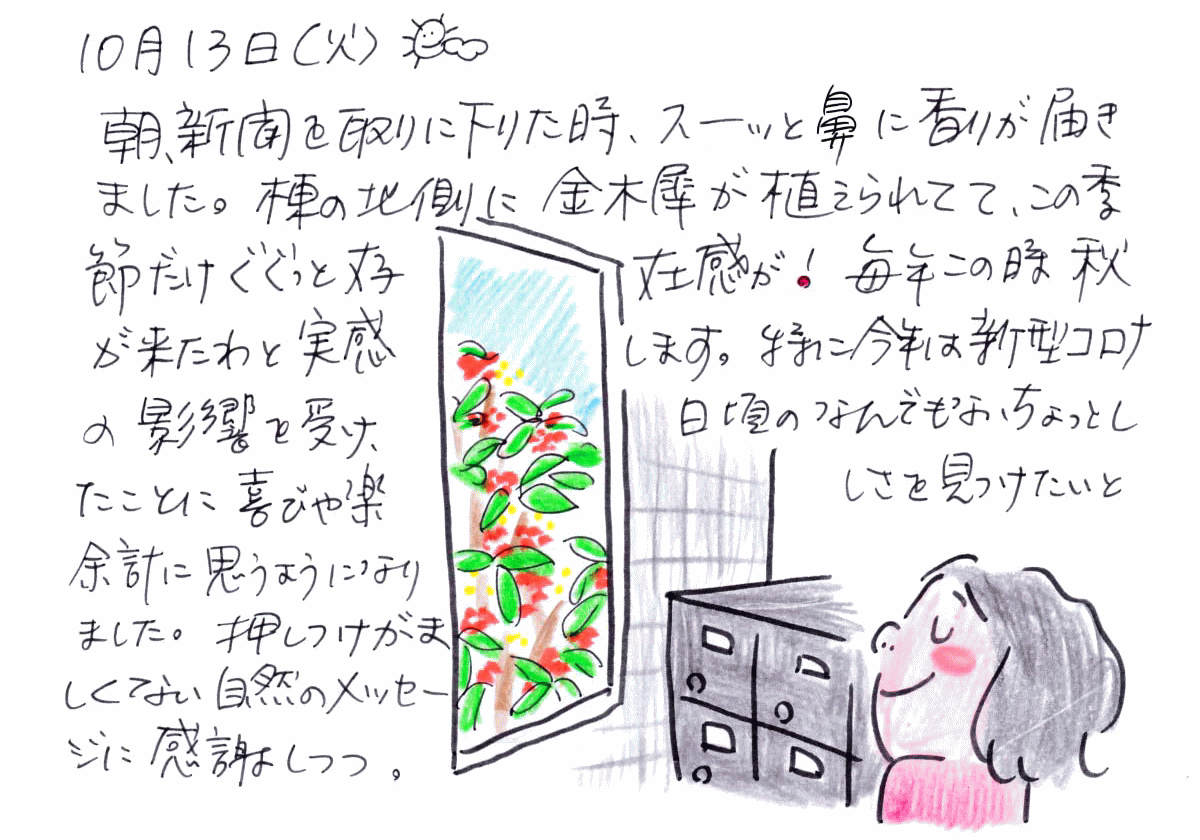 10月13日(火)
朝、新聞を取りに下りた時、スーッと鼻に香りが届き
ました。棟の地側に金木犀が植えられてて、この季
節だけぐぐっと存在感が!毎年この時秋
が来たわと実感します。特に今年は新型コロナ
の影響を受け、日頃のなんでもないちょっとし
たことに喜びや楽しさを見つけたいと
余計に思うようになり
ました。押しつけがま
しくてない自然のメッセー
ジに感謝しつつ。